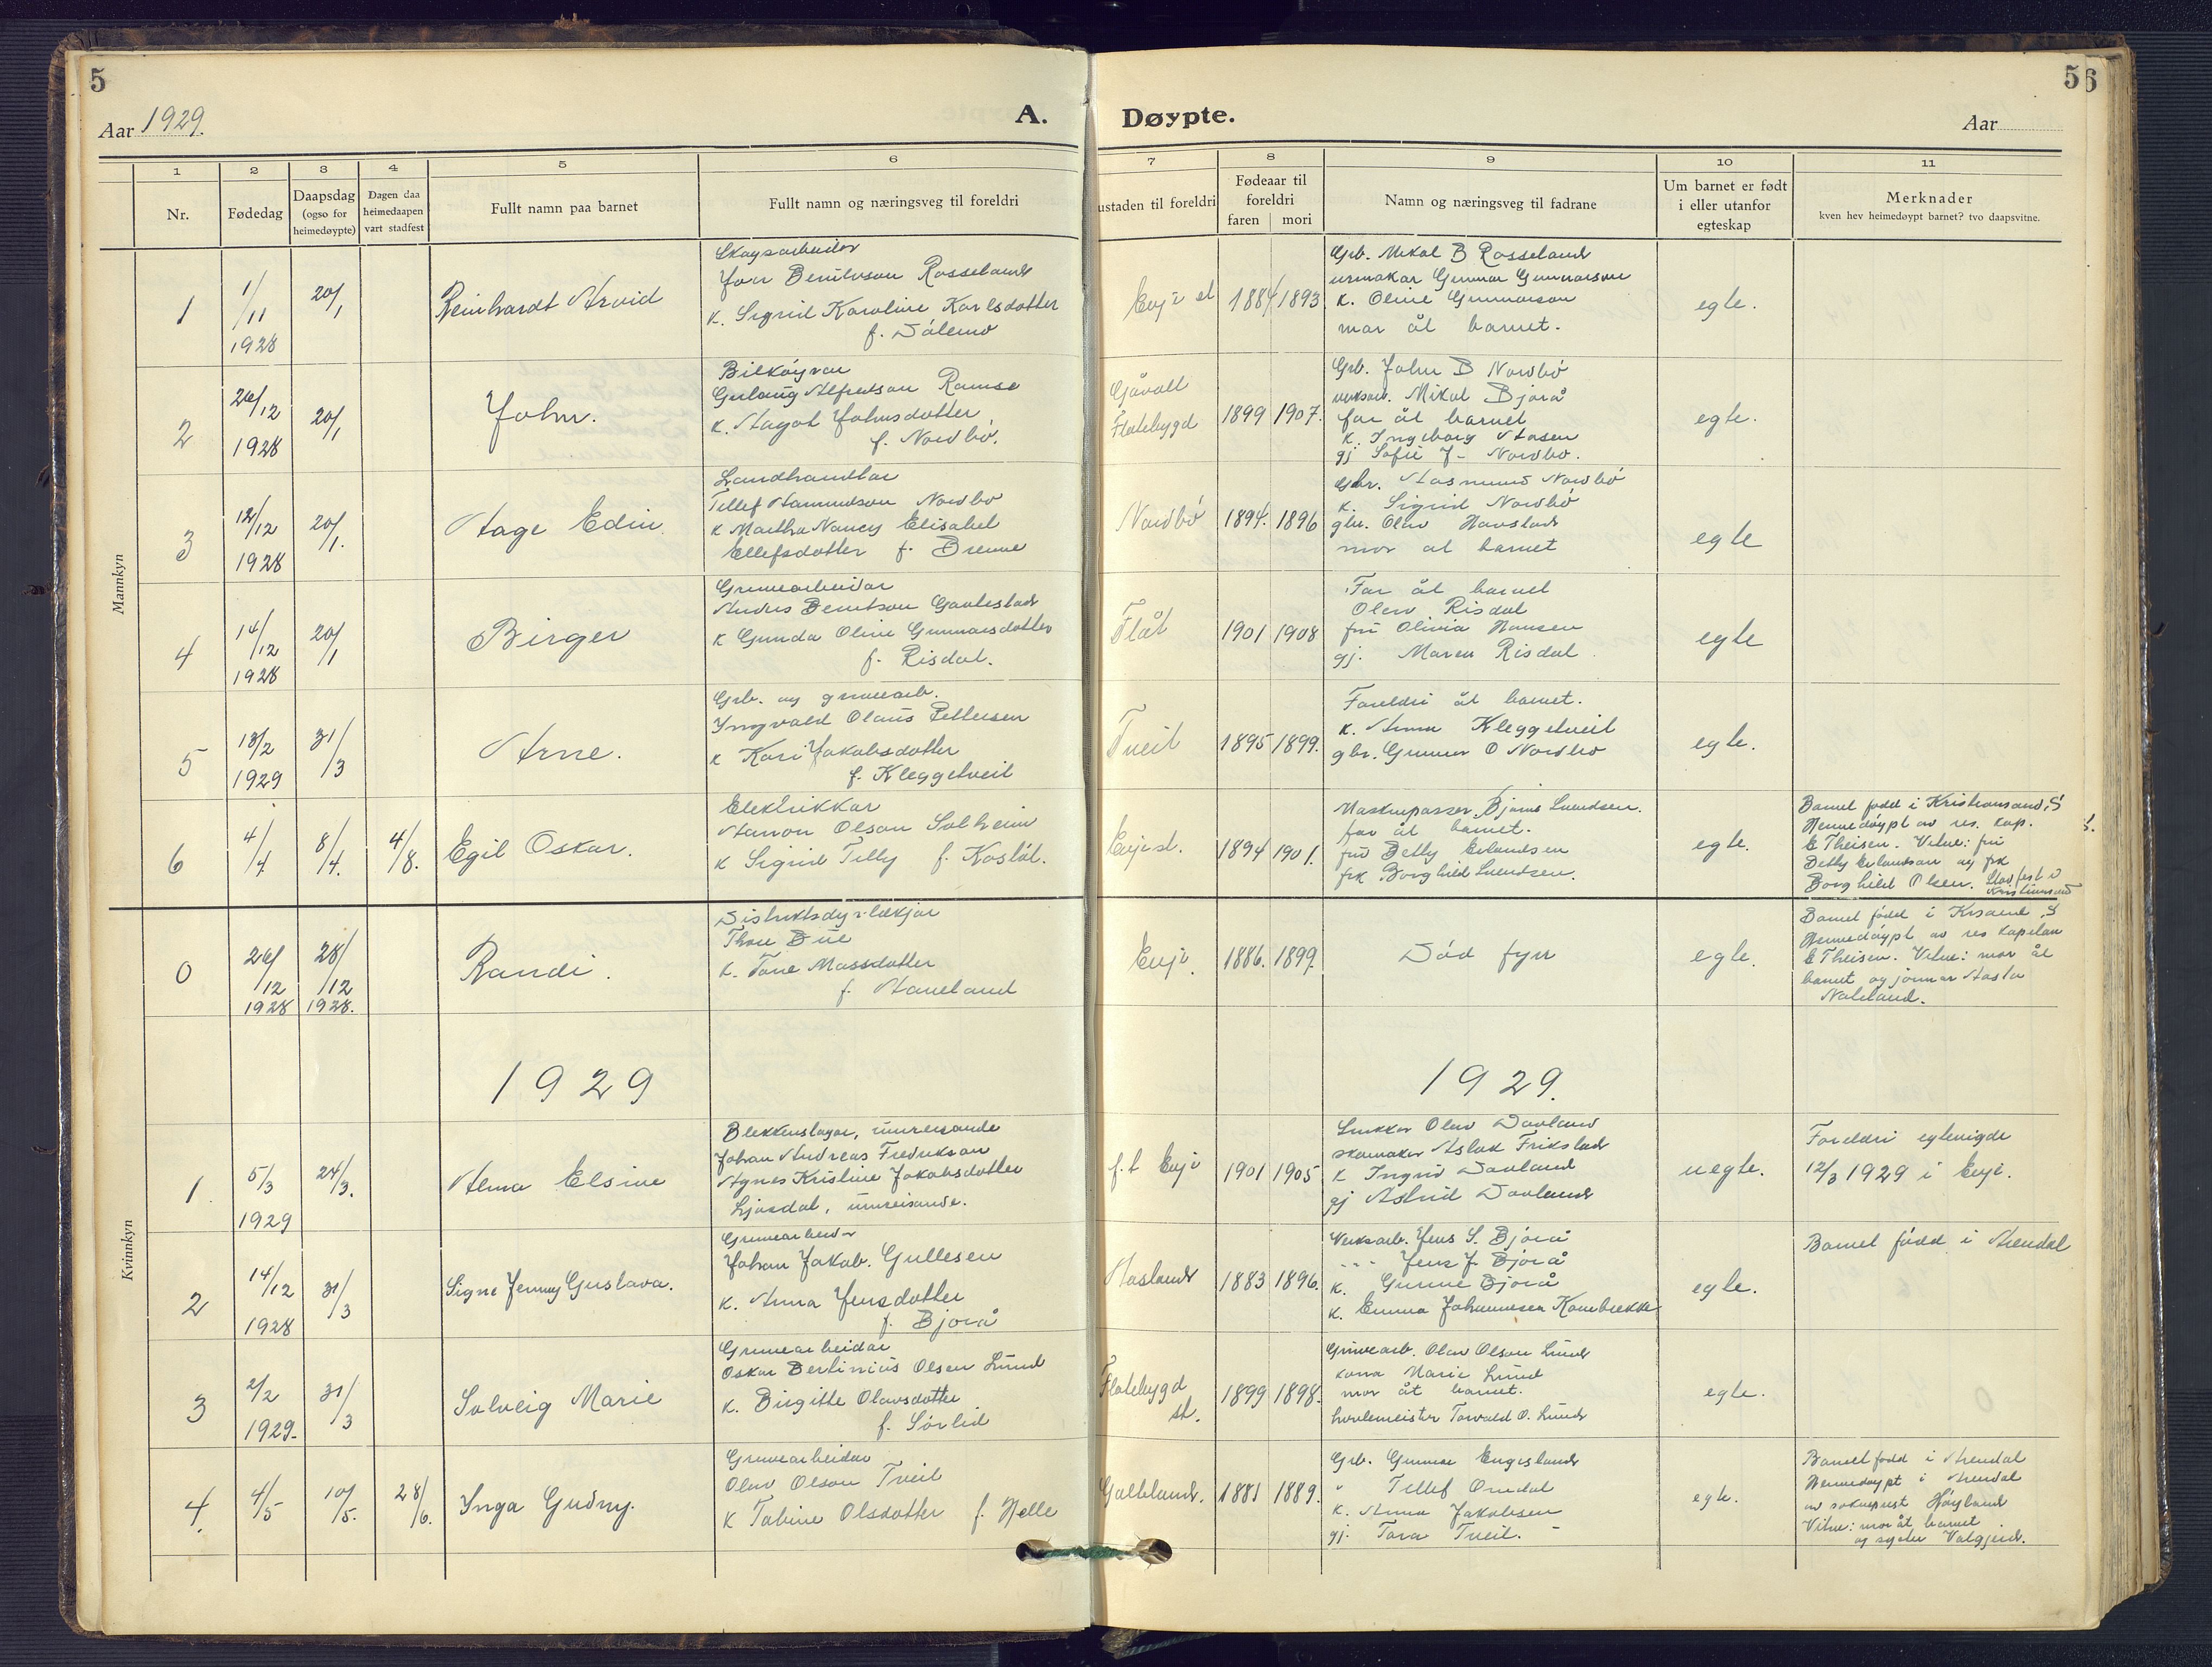 5
56
Aar 1929.
A.
Døypte.
Aar
1
2
3
4
5
6
7
8
9
10
11
Nr.
Fødedag
Daapsdag
(ogso for
heimedøypte)
Dagen daa
heimedaapen
vart stadfest
Fullt namn paa barnet
Fullt namn og næringsveg til foreldri
ustaden til foreldri
Fødeaar til
foreldri
faren
mori
Namn og næringsveg til fadrane
Um barnet er født
i eller utanfor
egteskap
Merknader
kven hev heimedøypt barnet? tvo daapsvitne.
Mannkyn
1
1/11
1928
20/1
Reinhardt Arvid
Skogsarbeider
Rosseland
k. Sigrid Karoline Karlsdotter
f. Dålemo
Evje st
1884
1893
Grb. Mikal B Rosseland
urmakar Gunnar Gunnarson
k. Oline Gunnarson
mor åt barnet.
egte.
2
26/12
1928
20/1
John.
Bilkøyrar
Alfredson Ramse
k. Aagot Johnsdotter
f. Nordbø.
Gåvall
Flatebygd
1899
1907.
Grb. John B Nordbø
verksarb. Mikal Bjorå
far åt barnet
k. Ingeborg Aasen
gj Sofie J- Nordbø.
egte.
3
12/12
1928
20/1.
Aage Edin.
Landhandlar
Tellef Aamundson Nordbø
k Martha Nancy Elisabet
Ellefsdotter f. Brenne
Nordbø
1894.
1896
Gbr. Aasmund Nordbø
k. Sigrid Nordbø
gbr. Olav Haustad
mor at barnet
egte
4
14/12
1928
20/1
Birger
Gruvearbeidar
Anders Berntson Gautestad
k Gunda Oline Gunnarsdotter
f. Risdal.
Flåt
1901
1908
Far åt barnet
Olav Risdal
fru Olivia Hansen
gj. Maren Risdal
egte
5
13/2
1929
31/3
Arne.
Grb. og gruvearb.
Yngvald Olaus Pettersen
k Kari Jakobsdotter
f. Kleggetveit
Tveit
1895
1899.
Foreldri åt barnet.
k. Anna Kleggetveit
gbr. Gunnar O Nordbø
egte.
6
4/4
8/4.
4/8.
Egil Oskar.
Elektrikkar
Aanon Olson Solheim
k Sigrid Telly f. Kosløt.
Evje st.
1894
1901.
Maskinpasser Bjarne Svendsen.
far åt barnet.
fru Betty Erlandsen
frk Borghild Svendsen.
egte.
Barnet fødd i Kristiansand, S
Heimedøypt av res. kap.
E Theisen. Vitne: fru
Betty Erlandsen og frk
Borghild Olsen. Stadfest i
Kristiansand
S.
Kvinnkyn
0
26/12
1928
28/12
1928.
Randi.
Distriktsdyrlækjar
Thore Bue
k. Tone Massdotter
f. Haneland
Evje.
1886.
1899.
Død fyrr
egte.
Barnet fødd i Krsand, S
Heimedøypt av res kapelan
E Theisen. Vitne: mor åt
barnet og jormor Aasta
Nateland.
1929
1929.
1.
5/3
1929
24/3.
Alma Elsine
Blekkenslagar, umreisande
Johan Andreas Fredrikson
Agnes Kristine Jakobsdotter
Ljosdal, umreisande.
f.t Evje
1901
1905
Snikkar Olav Davland
skomakar Aslak Frikstad
k Ingrid Davland
gj Astrid Davland
uegte.
Foreldri egtevigde
12/3 1929 i Evje.
2
14/12
1928
31/3
Signe Jenny Gustava.
Gruvearbeidar
Johan Jakob. Gullesen
k. Anna Jensdotter
f. Bjorå
Hasland
1883
1896.
Verksarb. Jens S. Bjorå
--- Jens J. Bjorå
k. Gunne Bjorå
k. Emma Johannesen
egte.
Barnet fødd i Arendal
3
2/2
1929.
31/3
Solveig Marie
Gruvearbeidar
Oskar Bertinius Olsen Lund
k. Birgitte Olavsdotter
f. Sørlid
Flatebygd
st.
1899
1898.
Gruvearb. Olav Olson Lund
kona Marie Lund
mor åt barnet.
hovlemeister Torvald O. Lund
egte.
4.
4/5
10/5.
28/6.
Ynga Gudny.
Gruvearbeidar
Olav Olson Tveit
k Tobine Olsdotter f. Helle
Galteland.
1881
1889.
Grb. Gunnar Engesland
" Tellef Omdal
k. Anna Jakobsen
gj. Tora Tveit. -
egte.
Barnet fødd i Arendal
Heimedøypt i Arendal
av sokneprest Høyland
Vitne: mor åt barnet
og syster Valgjerd.